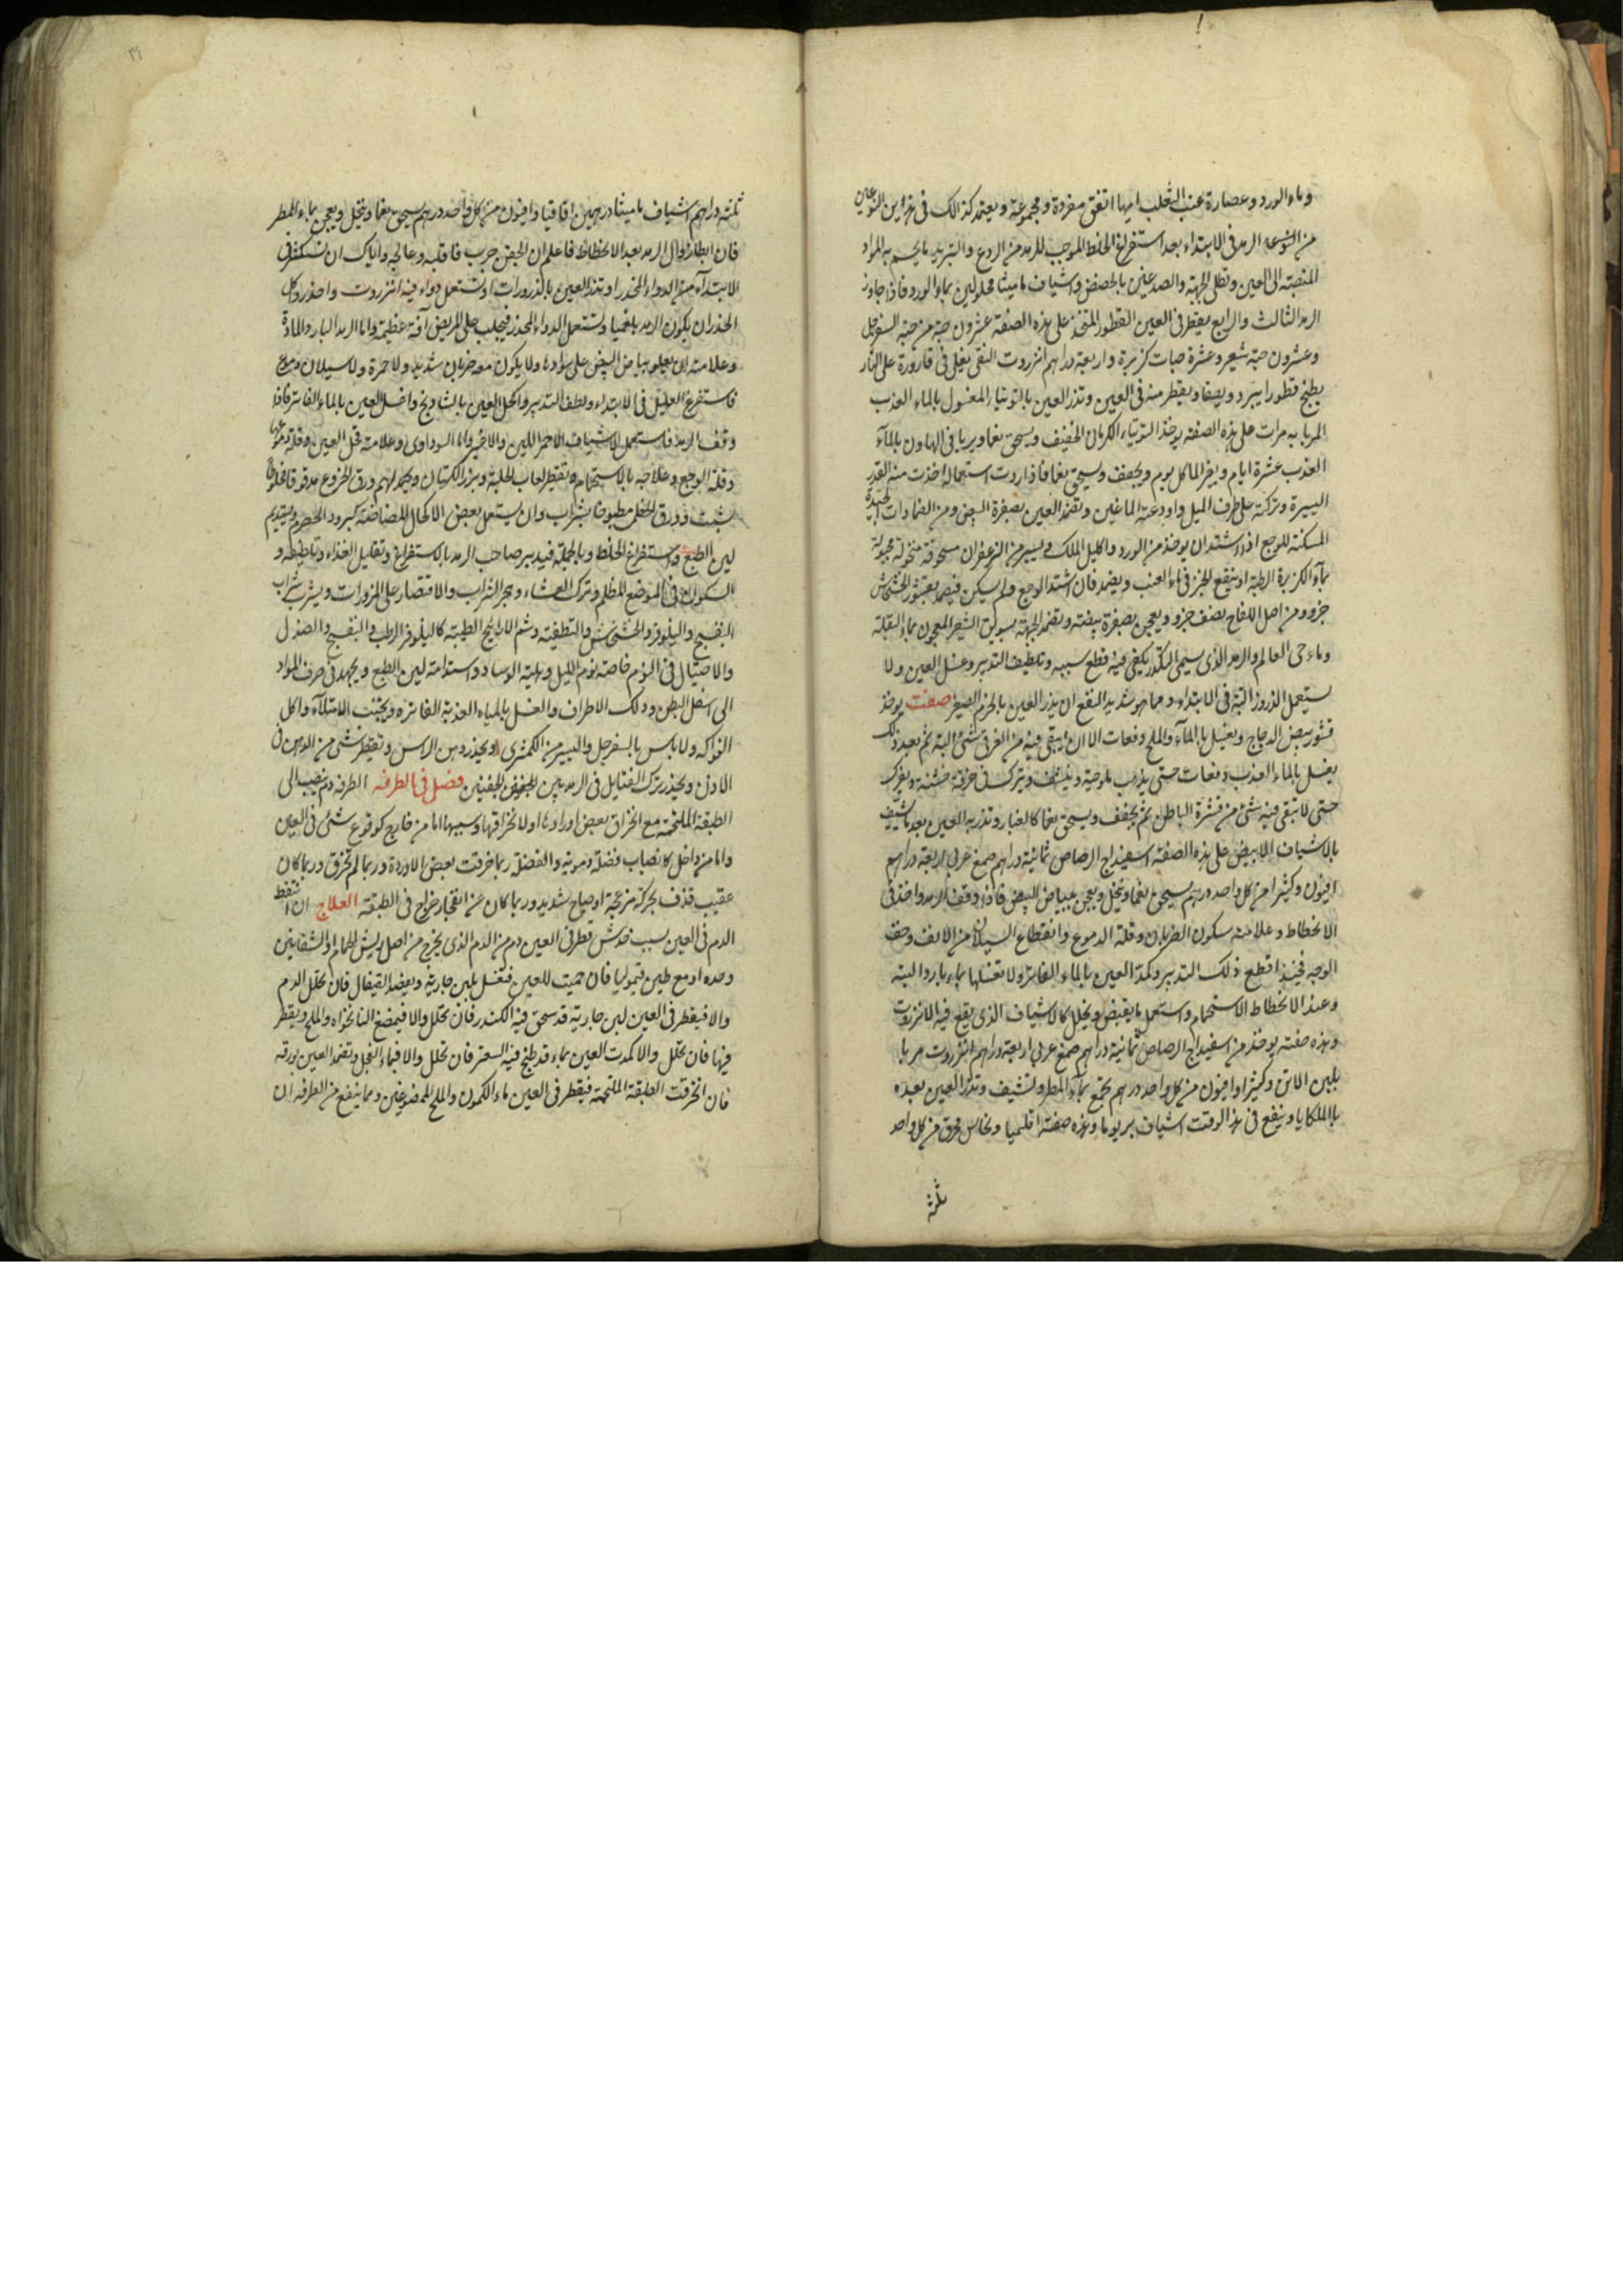 وماء الورد وعصارة عنب الثعلب ايها اتفق مفردة ومجموعة ويعتمد كذالك فى هذاين النوعين
من انواع الرمد فى الابتداء بعد استفراغ الخلط الموجب للرمد من الردع والتبريد ما يحسم به المواد
المنصبة الى العين وتطلى الجبهة والصدغين بالحضض واشياف ماميثا محلولين بماء الورد فاذا جاوز
الرمد الثالث والرابع يقطر فى العين القطور المتخذ على هذه الصفة عشرون حبة من حبة السفرجل
وعشرون حبة شعير وعشرة حبات كزبرة واربعة دراهم انزروت النقى يغلى فى قارورة على النار
يطبخ قطورا يبرد ويصفا ويقطر منه فى العين وتذر العين بالتوتيا المغسول بالماء العذب
المربا به مرات على هذه الصفة يوخذ التوتياء الكرمانى الخفيف ويسحق نعما ويربا فى الهاون بالمآء
العذب عشرة ايام ويغير الماء كل يوم ويجفف ويسحق نعما فاذا اردت استعماله اخذت منه القدر
اليسيرة وتركته على طرف الميل واودعته الماقين وتضمد العين بصفرة البيض ومن الضمادات الجيدة
المسكنة للوجع اذا اشتد ان يوخذ من الورد واكليل الملك ويسير من الزعفران مسحوقة منخولة مجبولة
بمآء الكزبرة الرطبة او ينقع الخبز فى ماء العنب ويضمد فان اشتد الوجع ولم يسكن فيضمد بقشور الخشخاش
جزو ومن اصل اللفاح نصف جزو ويعجن بصفرة بيضة وتضمد الجبهة بسويق الشعير المعجون بماء البقلة
وماء حى العالم والرمد الذى يسمى التكدر يكفى فيه قطع سببه وتلطيف التدبير وغسل العين ولا
يستعمل الذرور البتة فى الابتداء ومما هو شديد النفع ان يذر العين بالخرم الصغير صفت يوخذ
قشور بيض الدجاج ويغسل بالمآء والملح دفعات الا ان يبقى فيه من الغرقى شئ البتة ثم بعد ذلك
يغسل بالماء العذب دفعات حتى يذهب ملوحته وينشف ويترك فى خرقة خشنة ويفرك
حتى لا تبقى فيه شئ من قشرة الباطن ثم يجفف ويسحق نعما كالغبار وتذر به العين بعد ما تشيف
بالاشياف الابيض على هذه الصفة اسفيداج الرصاص ثمانية دراهم صمغ عربى اربعة دراهم
افيون وكثيرا من كل واحد درهم يسحق نعما وتنخل ويعجن ببياض البيض فاذا وقف الرمد واخذ فى
الانحطاط وعلامته سكون الضربان وقلة الدموع وانقطاع السيلان من الانف وخف
الوجه فحينئذ اقطع ذلك التدبير وكمد العين بالماء الفاتر ولا تغسلها بماء بارد البتة
وعند الانحطاط الاستحمام واستعمل ما يقبض ويحلل كالاشياف الذى يقع فيه الانزروت
وهذه صفته يوخذ من اسفيداج الرصاص ثمانية دراهم صمغ عربى اربعة دراهم انزروت مربا
بلبن الاتن وكثيرا وافيون من كل واحد درهم تجمع بمآء المطر وتشيف وتذر العين بعده
بالملكايا وينفع فى هذا الوقت اشياف بريوما وهذه صفته اقليميا ونحاس محرق من كل واحد
ثلثه
ثلثه دراهم اشياف ماميثا درهمين اقاقيا وافيون من كل واحد درهم يسحق نعما وينخل ويعجن بماء المطر
فان ابطا زوال الرمد بعد الانحطاط فاعلم ان الجفن جرب فاقلبه وعالجه واياك ان تستكثر فى
الابتدآء من الدواء المخدر او تذر العين بالذرورات او تستعمل دواء فيه انزروت واحذر كل
الحذر ان يكون الرمد بلغميا وتستعمل الدواء المخدر فيجلب على المريض آفة عظيمة واما الرمد البارد المادة
وعلامته ان يعلو بياض البيض على سوادها ولا يكون معه ضربان شديد ولا حمرة ولا سيلان دموع
فاستفرغ العليل فى الابتداء ولطف التدبير واكحل العين بالشادنج واغسل العين بالماء الفاتر فاذا
وقف الرمد فاستعمل الاشياف الاحمر اللين والاخضر واما السوداوى وعلامته قحل العين وقلة دموعها
وقلة الوجع وعلاجه بالاستحمام وتقطير لعاب الحلبة وبزر الكتان ويحمد لهم ورق الخروع مدقوقا مخلوطا
بشبث وورق الخطمى مطبوخا بشراب وان يستعمل بعض الاكحال المضاضة كبرود الحصرم ويستديم
لين الطبع واستفراغ الخلط وبالجملة فيدبر صاحب الرمد بالاستفراغ وتقليل الغذاء وتلطيفه و
السكون فى الموضع المظلم وترك العشاء وهجر الشراب والاقتصار على المزورات ويشرب شراب
البنفسج والنيلوفر والخشخاش والتطفية وشم الاراييح الطيبة كاليلوفر الرطب والبنفسج والصندل
والاحتيال فى النوم خاصة نوم الليل وتعلية الوساد واستدامة لين الطبع ويجهد فى صرف المواد
الى اسفل البطن ودلك الاطراف والغسل بالمياه العذبة الفاتره ويجتنب الامتلآء واكل
الفواكه ولا باس بالسفرجل واليسير من الكمثرى ويحذر دهن الراس وتقطير شئ من الدهن فى
الاذن ويحذر ترك الفتايل فى الرمد بين الجفنين فصل فى الطرفه الطرفه دم ينصب الى
الطبقة الملتحمة مع انخراق بعض اورادها او لا انخراقها وسببها اما من خارج كوقوع شئ فى العين
واما من داخل كانصباب فضلة دموية والفضلة ربما خرقت بعض الاوردة وربما لم تخرق وربما كان
عقيب قذف بحركة مزعجة او صياح شديد وربما كان عن انفجار خراج فى الطبقة العلاج ان انتفط
الدم فى العين بسبب خدش قطر فى العين دم من الدم الذى يخرج من اصل ريش الحمام او الشفانين
وحده او مع طين قيموليا فان حميت للعين فتغسل بلبن جارية ويفصد القيفال فان تحلل الدم
والا فيقطر فى العين لبن جارية قد سحق فيه الكندر فان تحلل والا فيمضغ النانخواه والملح ويقطر
فيها فان تحلل والا كمدت العين بماء قد طبخ فيه السعتر فان تحلل والا فبماء الفجل وتضمد العين بورقه
فان انخرقت الطبقة الملتحمة فيقطر فى العين ماء الكمون والملح الممضوغين ومما ينفع من الطرفه ان